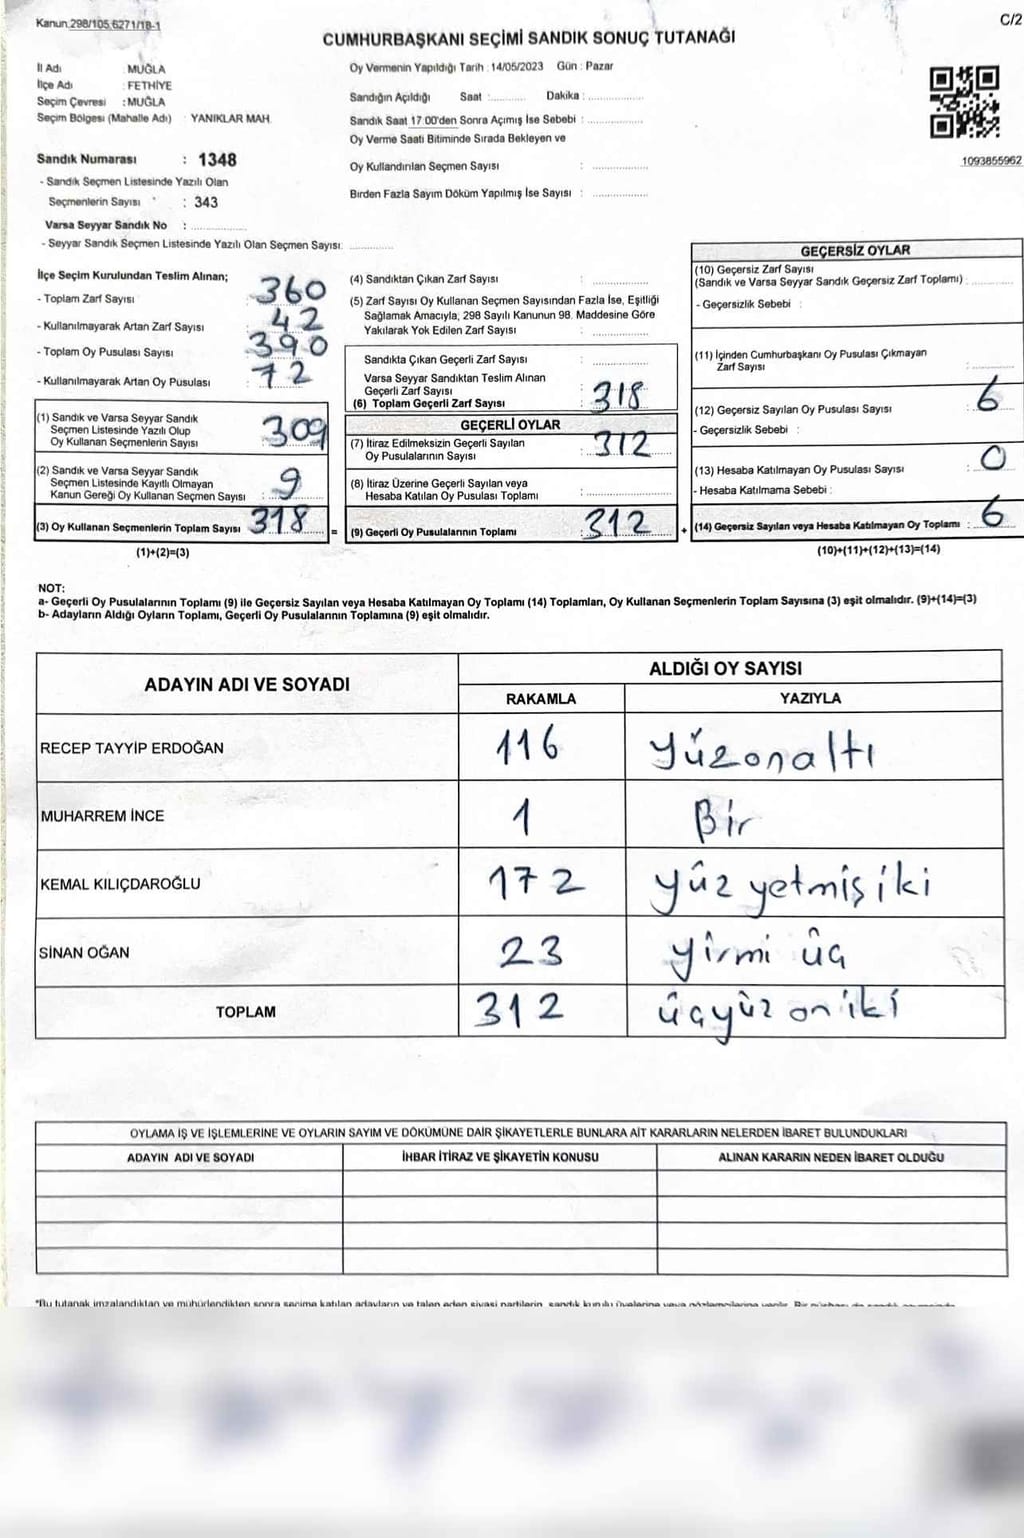 Kanun 298/105,6271/18-1
C/2
CUMHURBAŞKANI SEÇİMİ SANDIK SONUÇ TUTANAĞI
İl Adı : MUĞLA
İlçe Adı : FETHİYE
Seçim Çevresi : MUĞLA
Seçim Bölgesi (Mahalle Adı) : YANIKLAR MAH.
Sandık Numarası : 1348
- Sandık Seçmen Listesinde Yazılı Olan
Seçmenlerin Sayısı : 343
Varsa Seyyar Sandık No :
- Seyyar Sandık Seçmen Listesinde Yazılı Olan Seçmen Sayısı:
Oy Vermenin Yapıldığı Tarih : 14/05/2023 Gün : Pazar
Sandığın Açıldığı Saat : Dakika :
Sandık Saat 17:00'den Sonra Açımış İse Sebebi :
Oy Verme Saati Bitiminde Sırada Bekleyen ve
Oy Kullandırılan Seçmen Sayısı :
Birden Fazla Sayım Döküm Yapılmış İse Sayısı :
1093855962
İlçe Seçim Kurulundan Teslim Alınan;
- Toplam Zarf Sayısı 360
- Kullanılmayarak Artan Zarf Sayısı : 42
- Toplam Oy Pusulası Sayısı 390
- Kullanılmayarak Artan Oy Pusulası : 72
(1) Sandık ve Varsa Seyyar Sandık
Seçmen Listesinde Yazılı Olup
Oy Kullanan Seçmenlerin Sayısı : 309
(2) Sandık ve Varsa Seyyar Sandık
Seçmen Listesinde Kayıtlı Olmayan
Kanun Gereği Oy Kullanan Seçmen Sayısı : 9
(3) Oy Kullanan Seçmenlerin Toplam Sayısı : 318
(1)+(2)=(3)
=
(4) Sandıktan Çıkan Zarf Sayısı :
(5) Zarf Sayısı Oy Kullanan Seçmen Sayısından Fazla İse, Eşitliği
Sağlamak Amacıyla, 298 Sayılı Kanunun 98. Maddesine Göre
Yakılarak Yok Edilen Zarf Sayısı :
Sandıkta Çıkan Geçerli Zarf Sayısı :
Varsa Seyyar Sandıktan Teslim Alınan
Geçerli Zarf Sayısı :
(6) Toplam Geçerli Zarf Sayısı : 318
GEÇERLİ OYLAR
(7) İtiraz Edilmeksizin Geçerli Sayılan
Oy Pusulalarının Sayısı : 312
(8) İtiraz Üzerine Geçerli Sayılan veya
Hesaba Katılan Oy Pusulası Toplamı :
(9) Geçerli Oy Pusulalarının Toplamı : 312
+
GEÇERSİZ OYLAR
(10) Geçersiz Zarf Sayısı
(Sandık ve Varsa Seyyar Sandık Geçersiz Zarf Toplamı) :
- Geçersizlik Sebebi :
(11) İçinden Cumhurbaşkanı Oy Pusulası Çıkmayan
Zarf Sayısı :
(12) Geçersiz Sayılan Oy Pusulası Sayısı : 6
- Geçersizlik Sebebi :
(13) Hesaba Katılmayan Oy Pusulası Sayısı : 0
- Hesaba Katılmama Sebebi :
(14) Geçersiz Sayılan veya Hesaba Katılmayan Oy Toplamı : 6
(10)+(11)+(12)+(13)=(14)
NOT:
a- Geçerli Oy Pusulalarının Toplamı (9) ile Geçersiz Sayılan veya Hesaba Katılmayan Oy Toplamı (14) Toplamları, Oy Kullanan Seçmenlerin Toplam Sayısına (3) eşit olmalıdır. (9)+(14)=(3)
b- Adayların Aldığı Oyların Toplamı, Geçerli Oy Pusulalarının Toplamına (9) eşit olmalıdır.
ADAYIN ADI VE SOYADI ALDIĞI OY SAYISI
RAKAMLA YAZIYLA
RECEP TAYYİP ERDOĞAN 116 yüzonaltı
MUHARREM İNCE 1 Bir
KEMAL KILIÇDAROĞLU 172 yüz yetmiş iki
SİNAN OĞAN 23 yirmi üç
TOPLAM 312 üçyüz on iki
OYLAMA İŞ VE İŞLEMLERİNE VE OYLARIN SAYIM VE DÖKÜMÜNE DAİR ŞİKAYETLERLE BUNLARA AİT KARARLARIN NELERDEN İBARET BULUNDUKLARI
ADAYIN ADI VE SOYADI İHBAR İTİRAZ VE ŞİKAYETİN KONUSU ALINAN KARARIN NEDEN İBARET OLDUĞU
*Bu tutanak imzalandıktan ve mühürlendikten sonra seçime katılan adayların ve talep eden siyasi partilerin, sandık kurulu üyelerine veya gözlemcilerine verilir. Bir